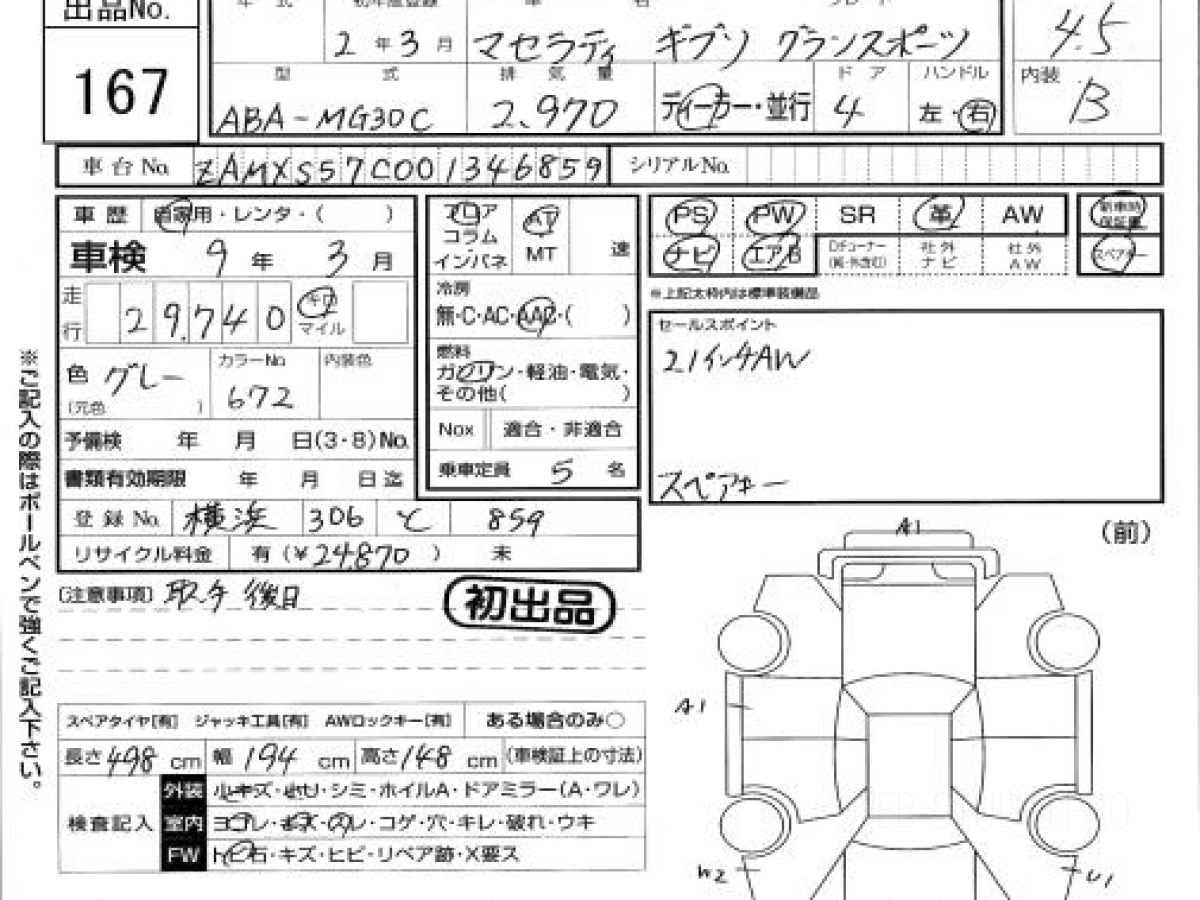 出品No. 167
2 年 3 月 マセラティ ギブリ グランスポーツ 4.5
型 式 排 気 量 ドア ハンドル 内装
ABA-MG30C 2.970 ディーラー・並行 4 左・右 B
車台No. ZAMXS57C001346859 シリアルNo.
車歴 自家用・レンタ・( ) フロア コラム インパネ AT MT 速 PS PW SR 革 AW 新車時保証書
車検 9 年 3 月 ナビ エアB Dチューナー(純・外含む) 社外ナビ 社外AW スペアキー
冷房
※上記太枠内は標準装備品
走行 29,740 キロ マイル 無・C・AC・AAC・( )
セールスポイント
21インチAW
燃料
色 グレー カラーNo. 672 内装色 ガソリン・軽油・電気・
(元色 ) その他( )
予備検 年 月 日(3・8)No. Nox 適合・非適合
書類有効期限 年 月 日迄 乗車定員 5 名
スペアキー
登録No. 横浜 306 と 859
リサイクル料金 有(¥24870 ) 未
A1 (前)
[注意事項] 取、予 後日
初出品
※ご記入の際はボールペンで強くご記入下さい。
A1
スペアタイヤ[有] ジャッキ工具[有] AWロックキー[有] ある場合のみ○
長さ 498 cm 幅 194 cm 高さ 148 cm (車検証上の寸法)
検査記入
外装 小キズ・・シミ・ホイルA・ドアミラー(A・ワレ)
室内 ヨゴレ・キズ・スレ・コゲ・穴・キレ・破れ・ウキ
FW トビ石・キズ・ヒビ・リペア跡・X要ス
W2 U1